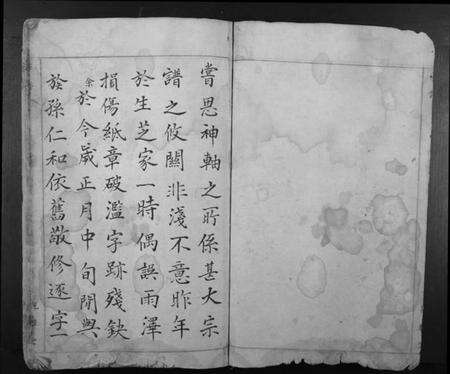 嘗思神軸之所係甚大宗
譜之攸關非淺不意昨年
於生芝家一時偶誤雨澤
損傷紙章破濫字跡殘缺
余於今歲正月中旬閒與
於孫仁和依舊敬修逐字一